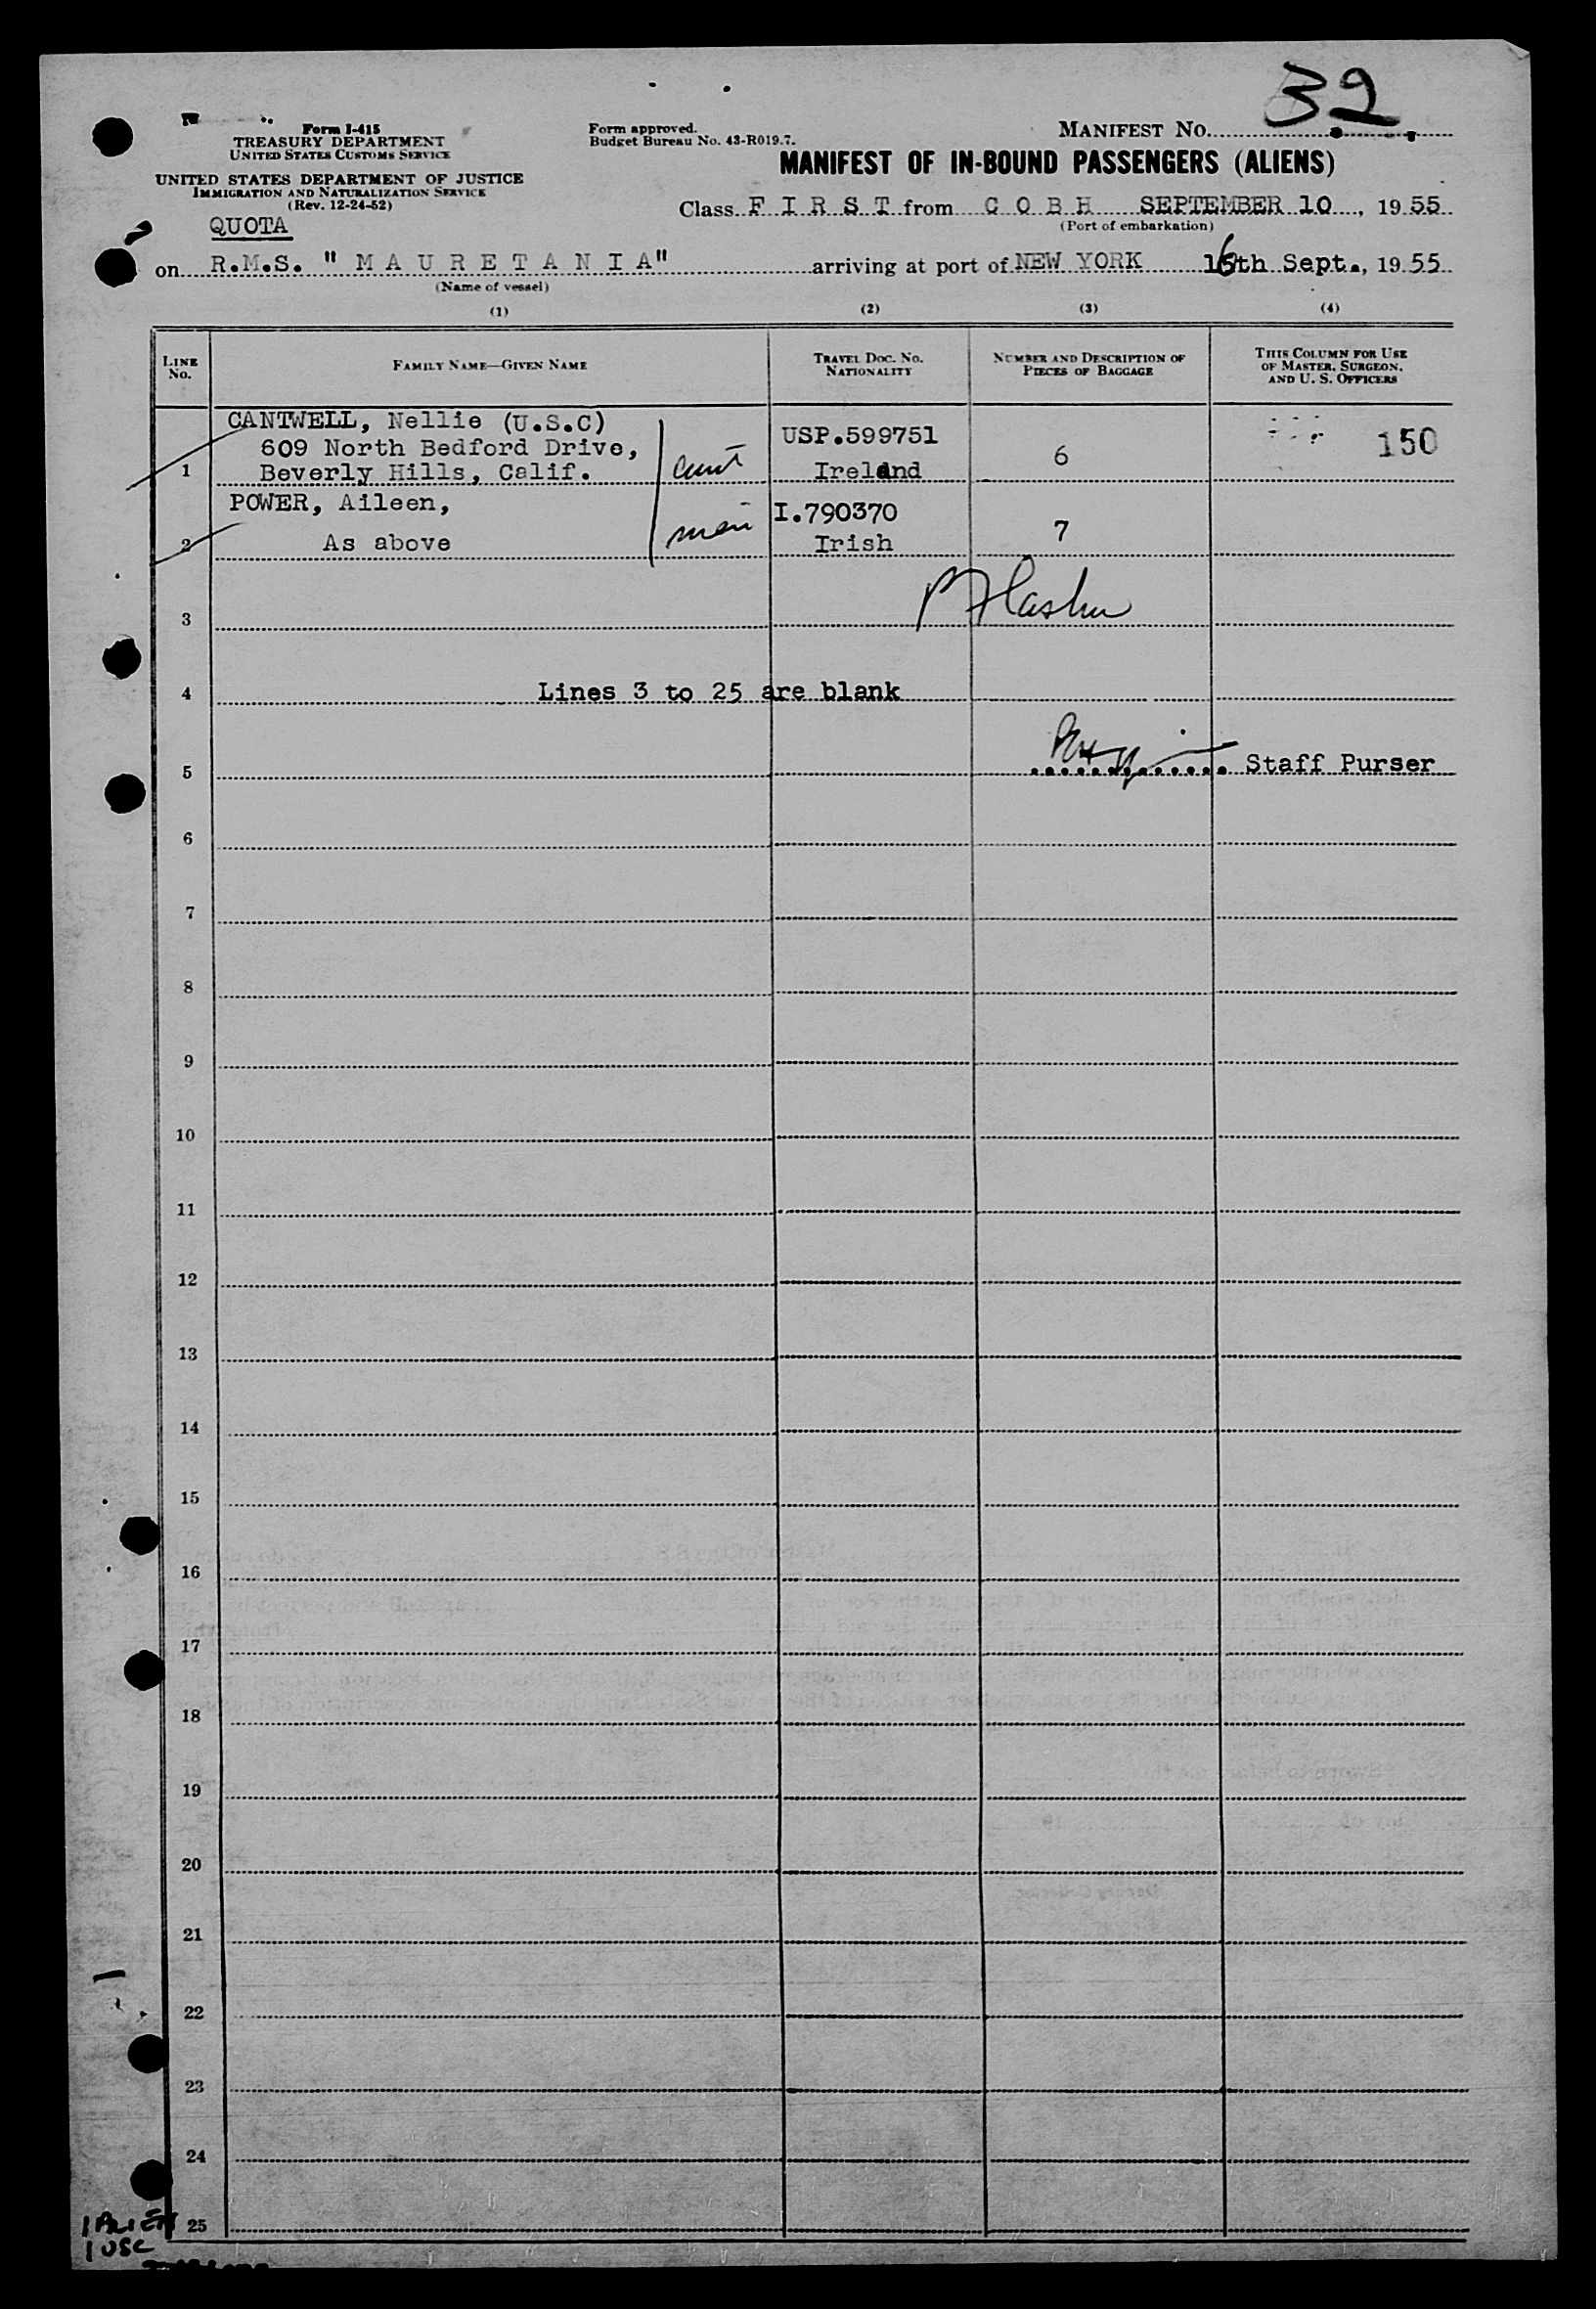 32.
Form I-415
TREASURY DEPARTMENT
UNITED STATES CUSTOMS SERVICE
Form approved.
Budget Bureau No. 43-R019.7.
MANIFEST NO.
UNITED STATES DEPARTMENT OF JUSTICE
IMMIGRATION AND NATURALIZATION SERVICE
(Rev. 12-24-52)
MANIFEST OF IN-BOUND PASSENGERS (ALIENS)
QUOTA
Class F I R S T from C O B H SEPTEMBER 10, 1955
(Port of embarkation)
on R.M.S. " M A U R E T A N I A" arriving at port of NEW YORK 16th Sept., 1955
(Name of vessel)
(1) (2) (3) (4)
LINE NO. FAMILY NAME—GIVEN NAME TRAVEL DOC. NO. NATIONALITY NUMBER AND DESCRIPTION OF PIECES OF BAGGAGE THIS COLUMN FOR USE OF MASTER, SURGEON, AND U. S. OFFICERS
CANTWELL, Nellie (U.S.C) USP.599751 150
609 North Bedford Drive, 6
1 Beverly Hills, Calif. aunt Ireland
POWER, Aileen, I.790370
2 As above Irish 7
3
4 Lines 3 to 25 are blank
5 Staff Purser
6
7
8
9
10
11
12
13
14
15
16
17
18
19
20
21
22
23
24
25
1 ALIEN
1 USC